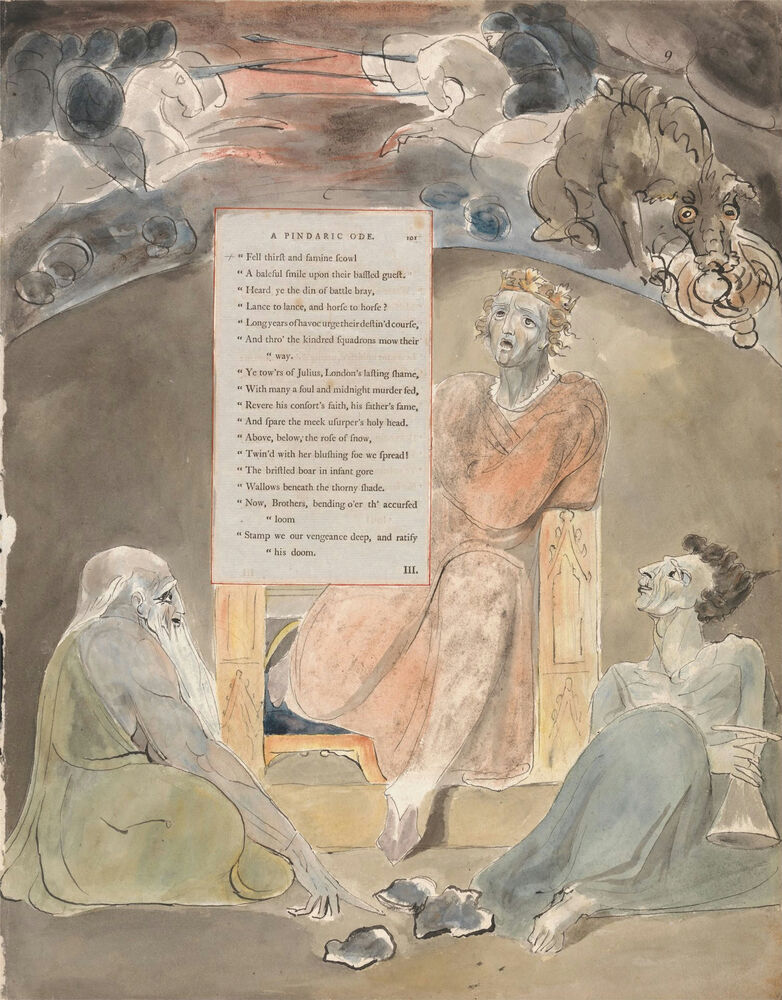 9
A PINDARIC ODE. 101
“ Fell thirſt and famine ſcowl
“ A baleful ſmile upon their baffled gueſt.
“ Heard ye the din of battle bray,
“ Lance to lance, and horſe to horſe ?
“ Long years of havoc urge their deſtin'd courſe,
“ And thro' the kindred ſquadrons mow their
“ way.
“ Ye tow'rs of Julius, London's laſting ſhame,
“ With many a foul and midnight murder fed,
“ Revere his conſort's faith, his father's fame,
“ And ſpare the meek uſurper's holy head.
“ Above, below, the roſe of ſnow,
“ Twin'd with her bluſhing foe we ſpread!
“ The briſtled boar in infant gore
“ Wallows beneath the thorny ſhade.
“ Now, Brothers, bending o'er th' accurſed
“ loom
“ Stamp we our vengeance deep, and ratify
“ his doom.
III.